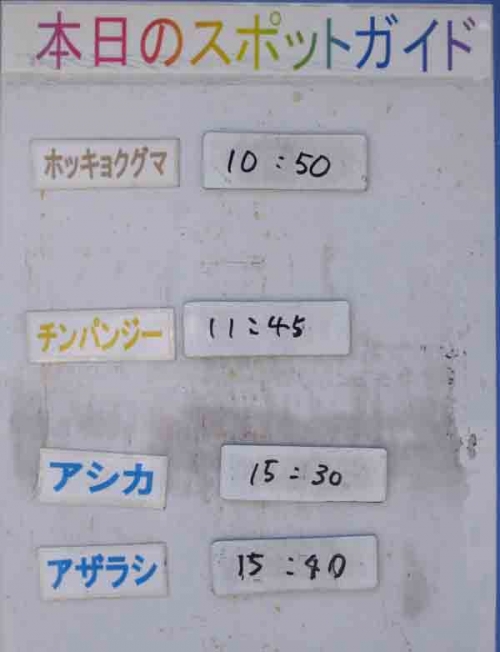 本日のスポットガイド
ホッキョクグマ 10:50
チンパンジー 11:45
アシカ 15:30
アザラシ 15:40